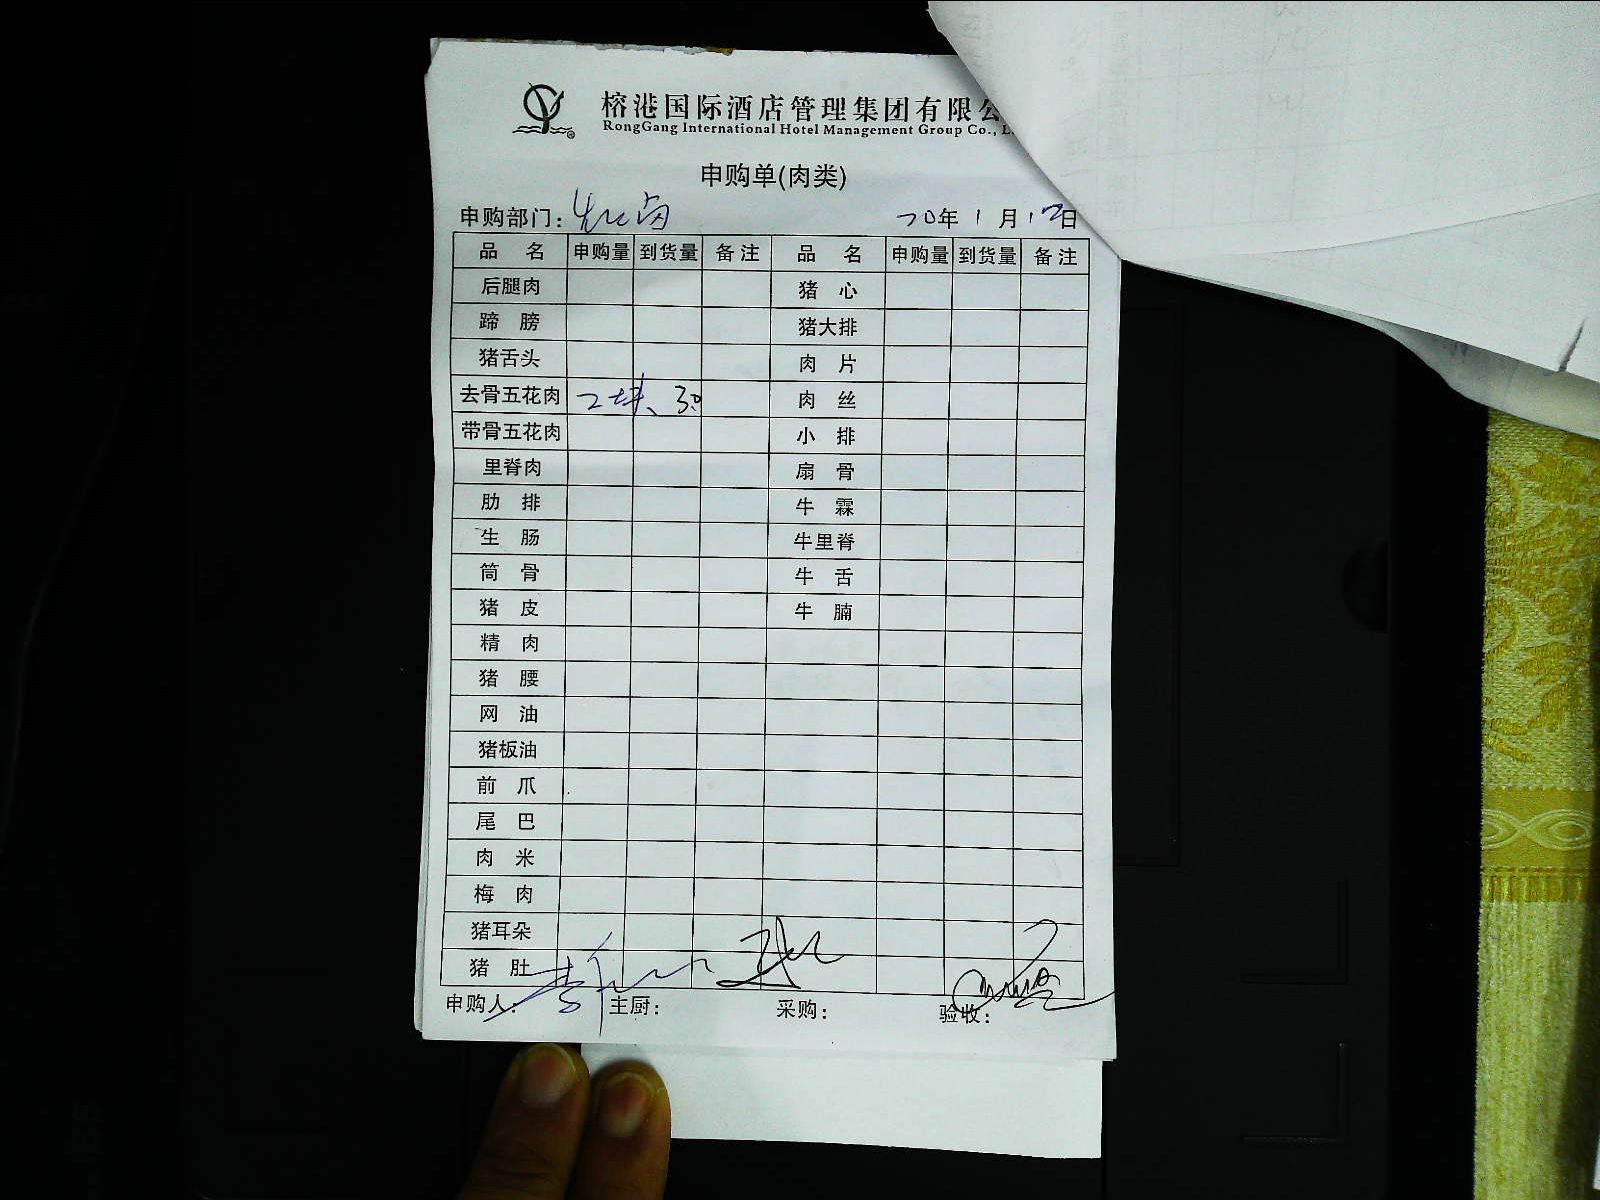 榕港国际酒店管理集团有限公
RongGang International Hotel Management Group Co., L
申购单(肉类)
申购部门: 烧卤 20年1月12日
品名 申购量 到货量 备注 品名 申购量 到货量 备注
后腿肉 猪心
蹄膀 猪大排
猪舌头 肉片
去骨五花肉 2块、30 肉丝
带骨五花肉 小排
里脊肉 扇骨
肋排 牛霖
生肠 牛里脊
筒骨 牛舌
猪皮 牛腩
精肉
猪腰
网油
猪板油
前爪
尾巴
肉米
梅肉
猪耳朵
猪肚
申购人: 主厨: 采购: 验收: